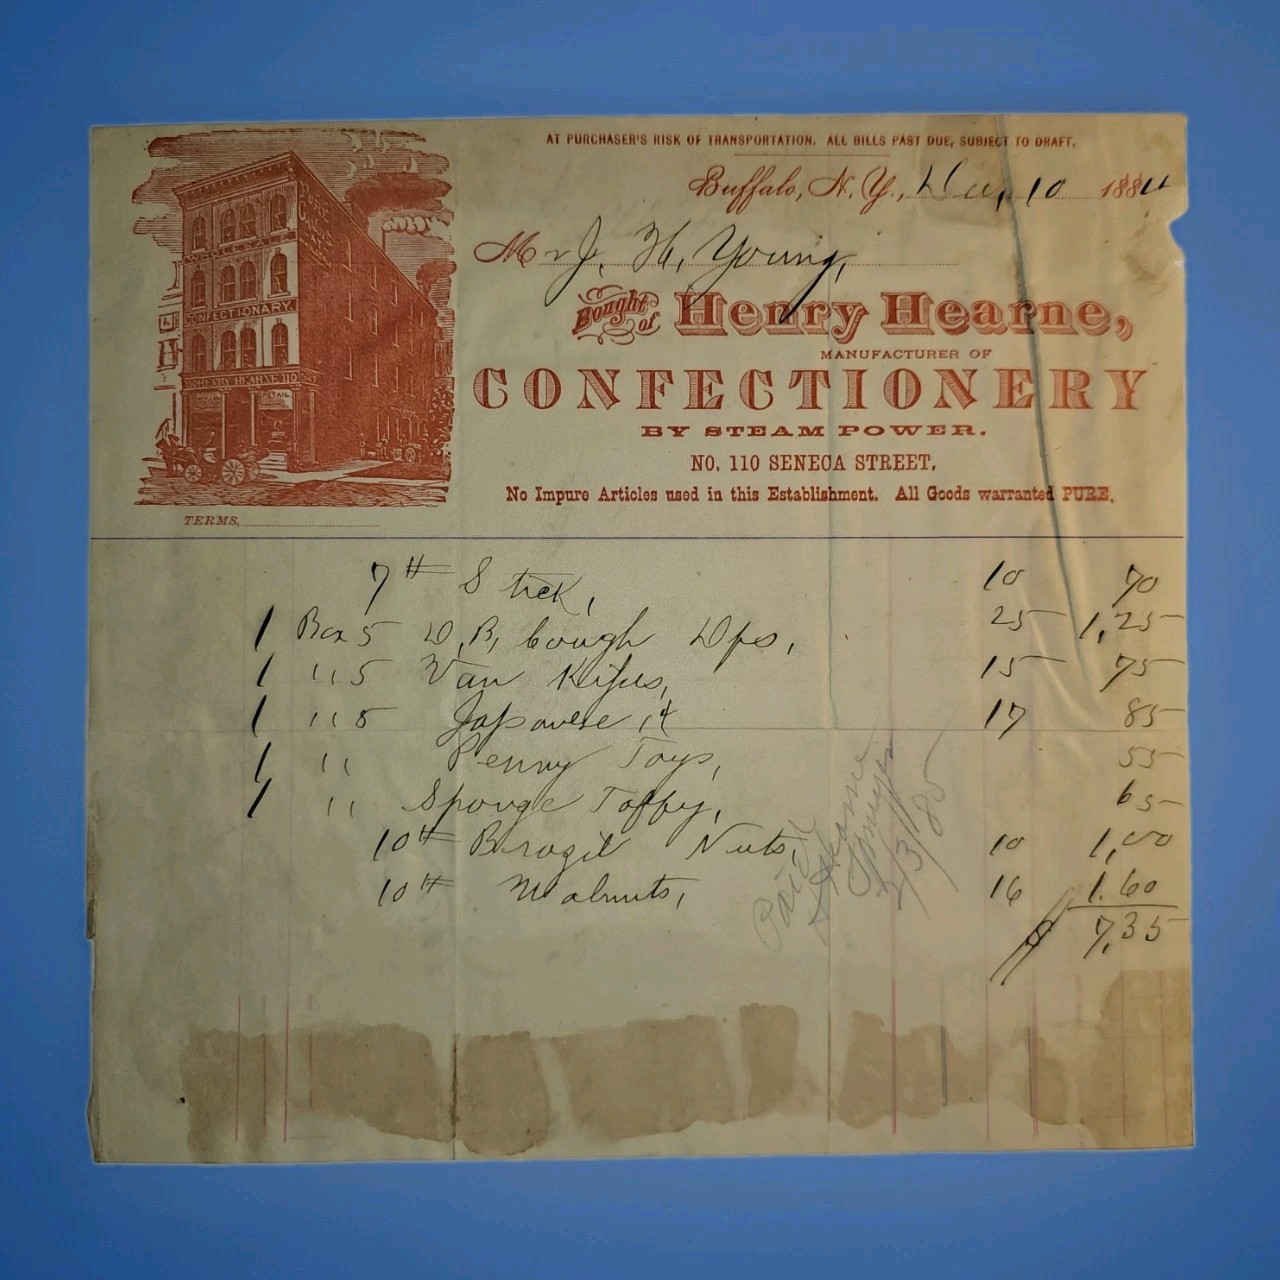 AT PURCHASER'S RISK OF TRANSPORTATION. ALL BILLS PAST DUE, SUBJECT TO DRAFT.
Buffalo, N. Y., Dec, 10 1884
Mr J. H. Young,
Bought of Henry Hearne,
MANUFACTURER OF
CONFECTIONERY
BY STEAM POWER.
NO. 110 SENECA STREET.
No Impure Articles used in this Establishment. All Goods warranted PURE.
WHOLESALE
CONFECTIONARY
HENRY HEARNE 110
RETAIL
PURE
TERMS,
7 # Stick, 10 70
1 Box 5 D, B, Cough Dps, 25 1,25
1 " 5 Van Kisses, 15 75
1 " 5 Japanese 17 85
1 " Penny Toys, 55
1 " Sponge Toffy, 65
10 # Brazil Nuts, 10 1,00
10 # Walnuts, 16 1.60
$ 7,35
Paid
H Hearne
3/85